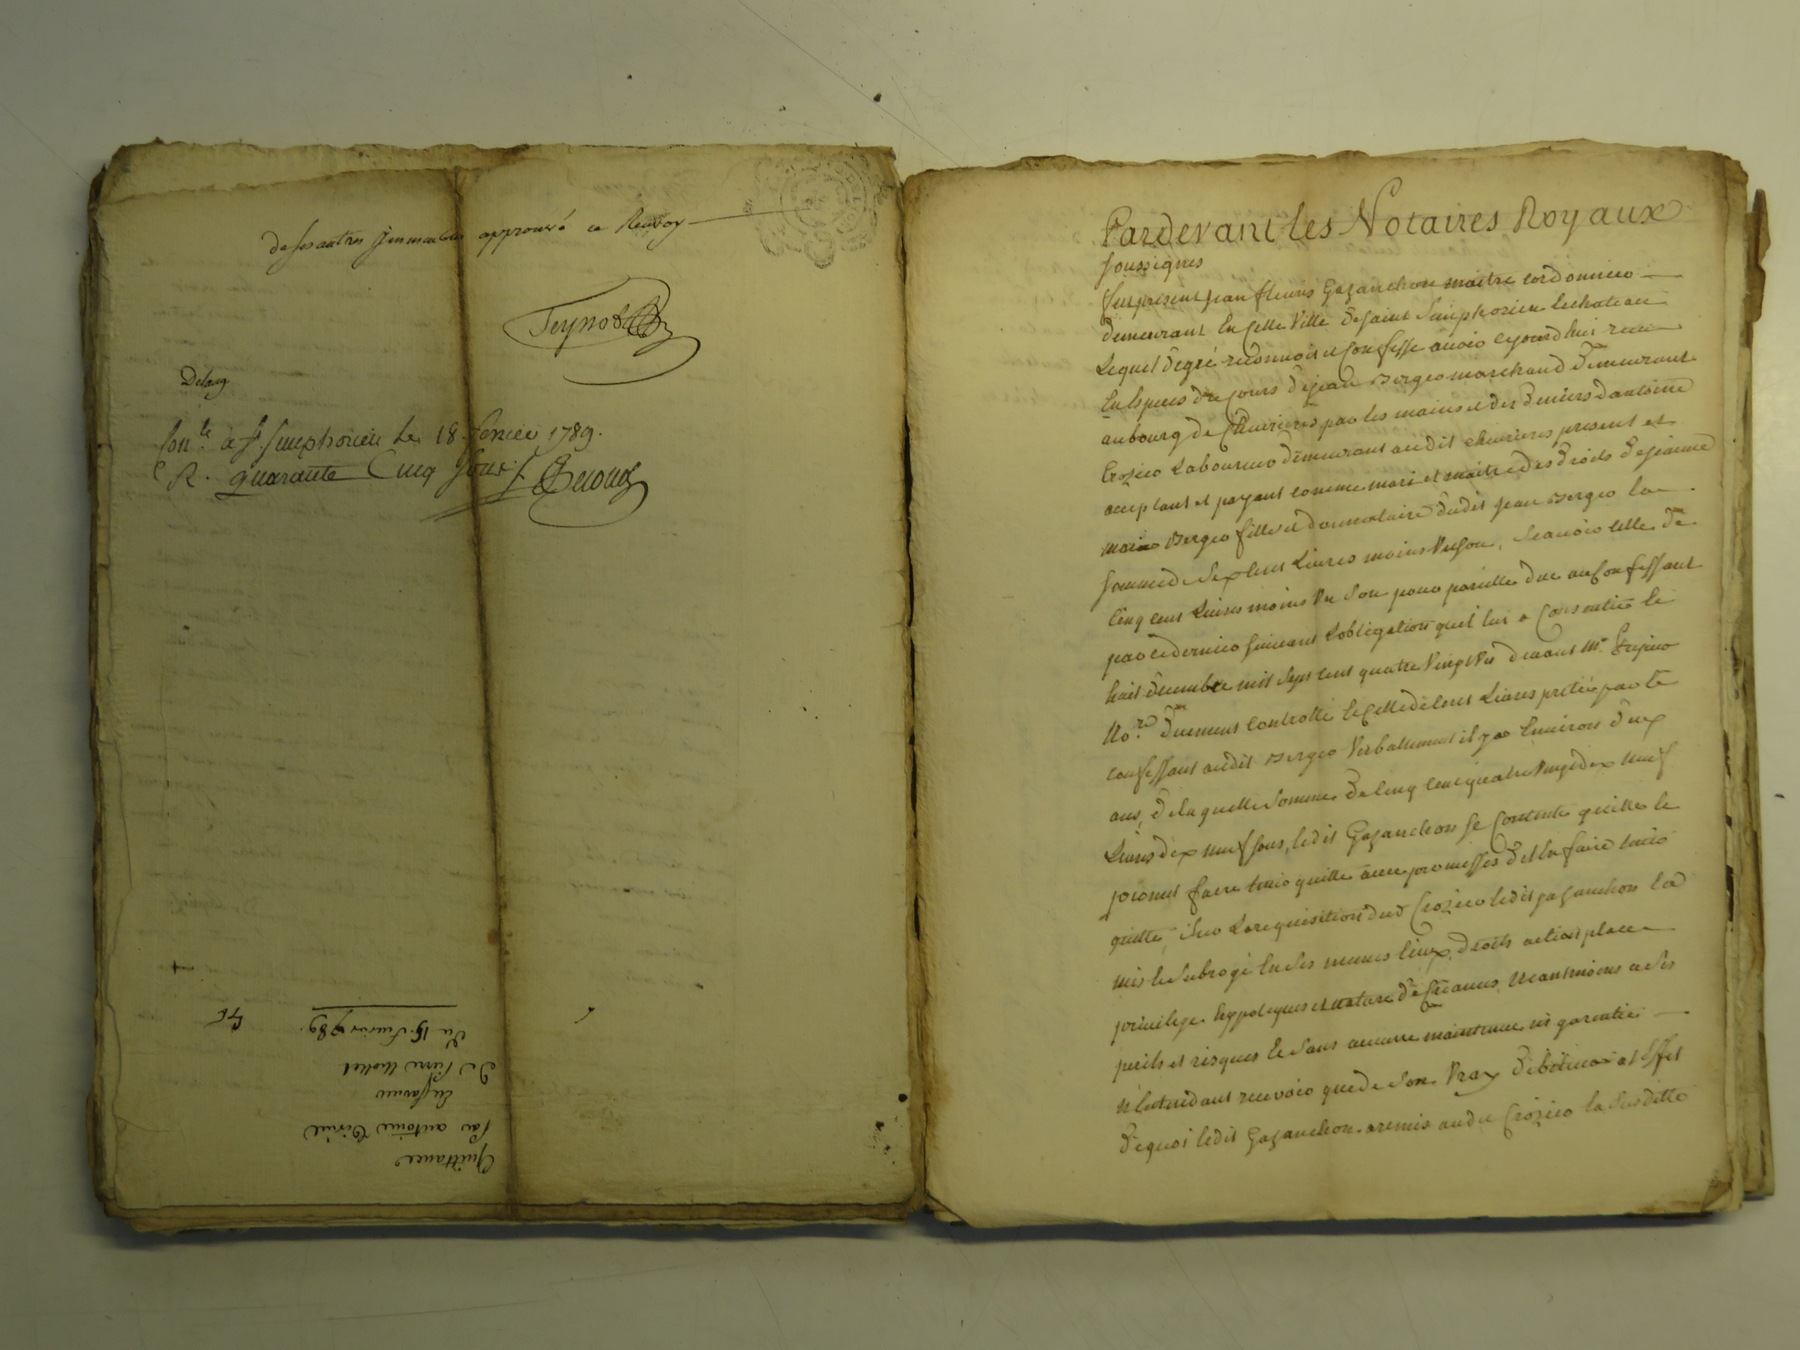 de ses autres immeubles approuvé ce Renvoy
Teynod
Delong
Con.le à S.t Simphorien le 18. fevrier 1789.
R. quarante Cinq Sous
Quittance
par antoine
De Pierre
Du 15. fevrier 1789.
Pardevant les Notaires Royaux
soussignes
fut present Jean fleuris Gazanchon maitre cordonnier
demeurant En Cette Ville de saint Simphorien Lechateau
Lequel de gré reconnoit et Confesse avoir cejourd'huy receu
En Especes de Cours de jean Berger marchand demeurant
au bourg de Chevrieres par les mains et des deniers d'antoine
Crozier Laboureur demeurant audit chevrieres present et
acceptant et payant comme mari et maitre des droits de jeanne
marie Berger fille et donnataire dudit jean Berger la
somme de Six Cens Livres moins Un sou, Scavoir celle de
Cinq cens Livres moins Un Sou pour pareille due au Confessant
par ce dernier suivant L'obligation qu'il lui a Consentie le
huit decembre mil Sept cent quatre Vingt Un devant M.e
No.re duement Controllé et Celle de Cent Livres pretée par le
confessant audit Berger Verballement il y a Environ deux
ans, de laquelle Somme de Cinq Cent quatre Vingt dix neuf
Livres dix neuf sous, ledit Gazanchon se Contente quitte le
promet faire tenir quitte avec promesses d'et En faire tenir
quitte, Sur La requisition dud. Crozier ledit gazanchon l'a
mis et Subrogé En Ses memes lieux, droits action place
privilege hypoteques et nature de Creances, neantmoins a Ses
perils et risques Et Sans aucune maintenue ni garentie
N'Entendant recevoir que de Son Vray debiteur a et Effet
dequoi ledit Gazanchon a remis audit Crozier la Susditte